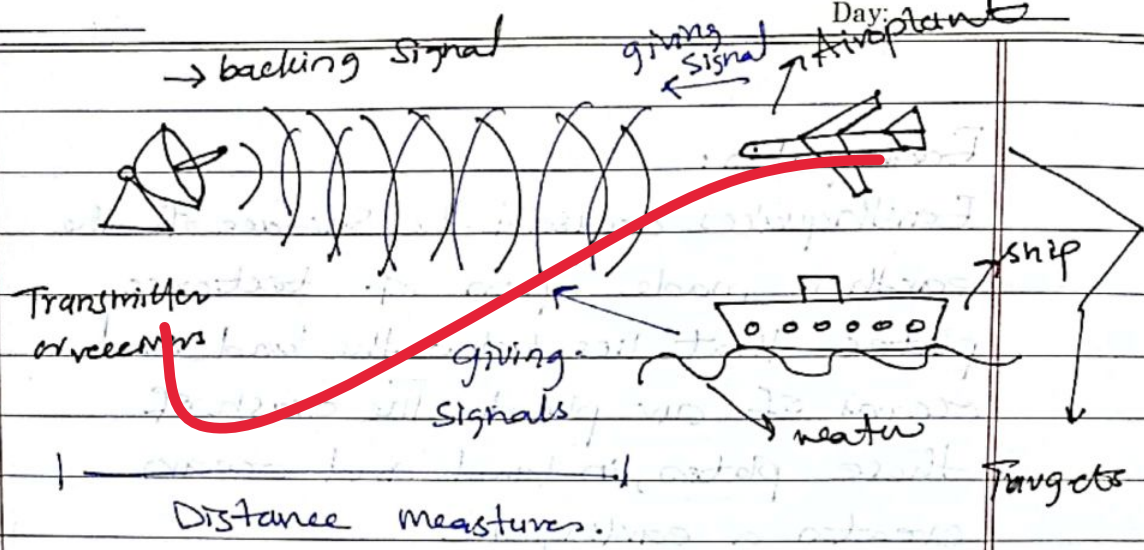 Day:
→ backing Signal
giving
Signal
Airoplant
ship
Transmitter
or receivers
giving
Signals
water
Targets
Distance meastures.